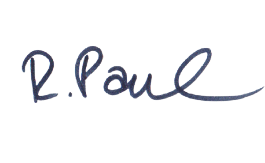 R. Paul